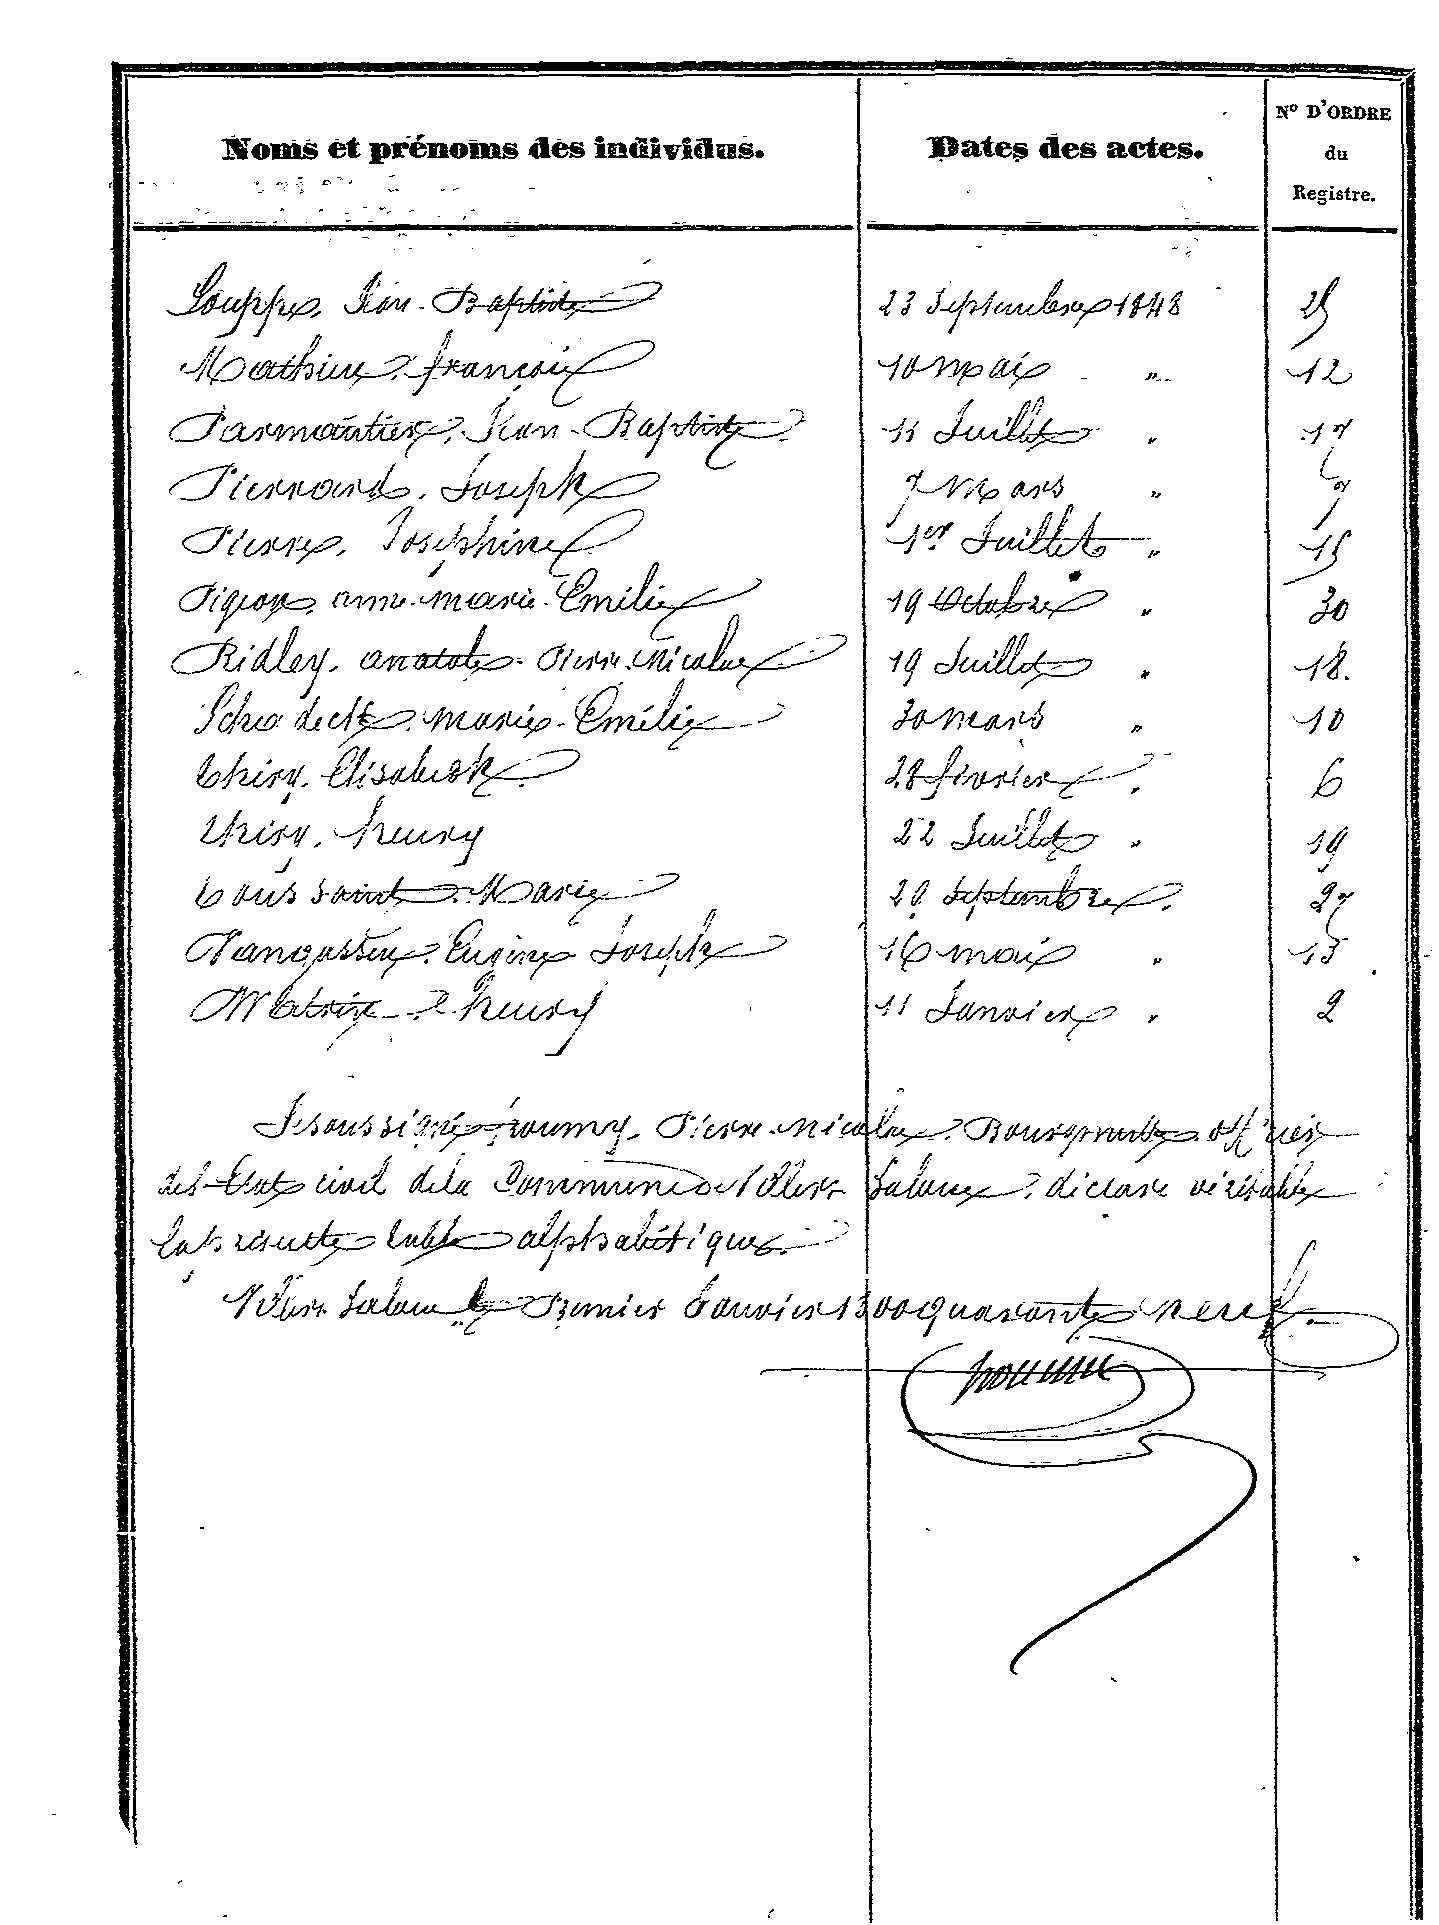 Noms et prénoms des individus. Dates des actes. N° D'ORDRE
du
Registre.
Jean-Baptiste 23 Septembre 1848 25
Mathieu, françois 10 mai " 12
Parmantier, Jean-Baptiste 11 Juillet " 17
Pierrard, Joseph 7 Mars " 7
Pierre, Josephine 1er Juillet " 15
Pigeon, anne-marie-Emilie 19 Octobre " 30
Ridley, anatole-Pierre-Nicolas 19 Juillet " 18.
marie-Emélie 30 mars " 10
thiry, Elisabeth 28 février " 6
thiry, henry 22 Juillet " 19
toussaint, Marie 29 Septembre " 27
Eugène Joseph 16 mai " 13
henry 11 Janvier " 2
Je soussigné Pierre-Nicolas, Bourgmestre officier
de l'Etat civil de la Commune de declare véritable
la présente table alphabétique.
le Premier Janvier 1800 quarante neuf.